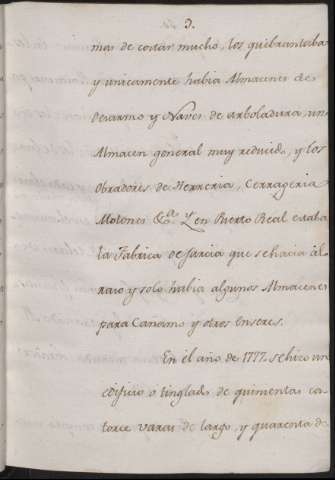 3.
mas de costar mucho, los quebrantaba
y unicamente habia Almacenes de
Desarmo y Naves de Arboladura, un
Almacen general muy reducido, y los
Obradores de Herreria, Cerrageria
Motones &.ª Y en Puerto Real estaba
la Fabrica de Jarcia que se hacia al
raso y solo habia algunos Almacenes
para Cañamo y otros Enseres.
En el año de 1777. se hizo un
edificio o tinglado de quinientas ca-
torce varas de largo, y quarenta de